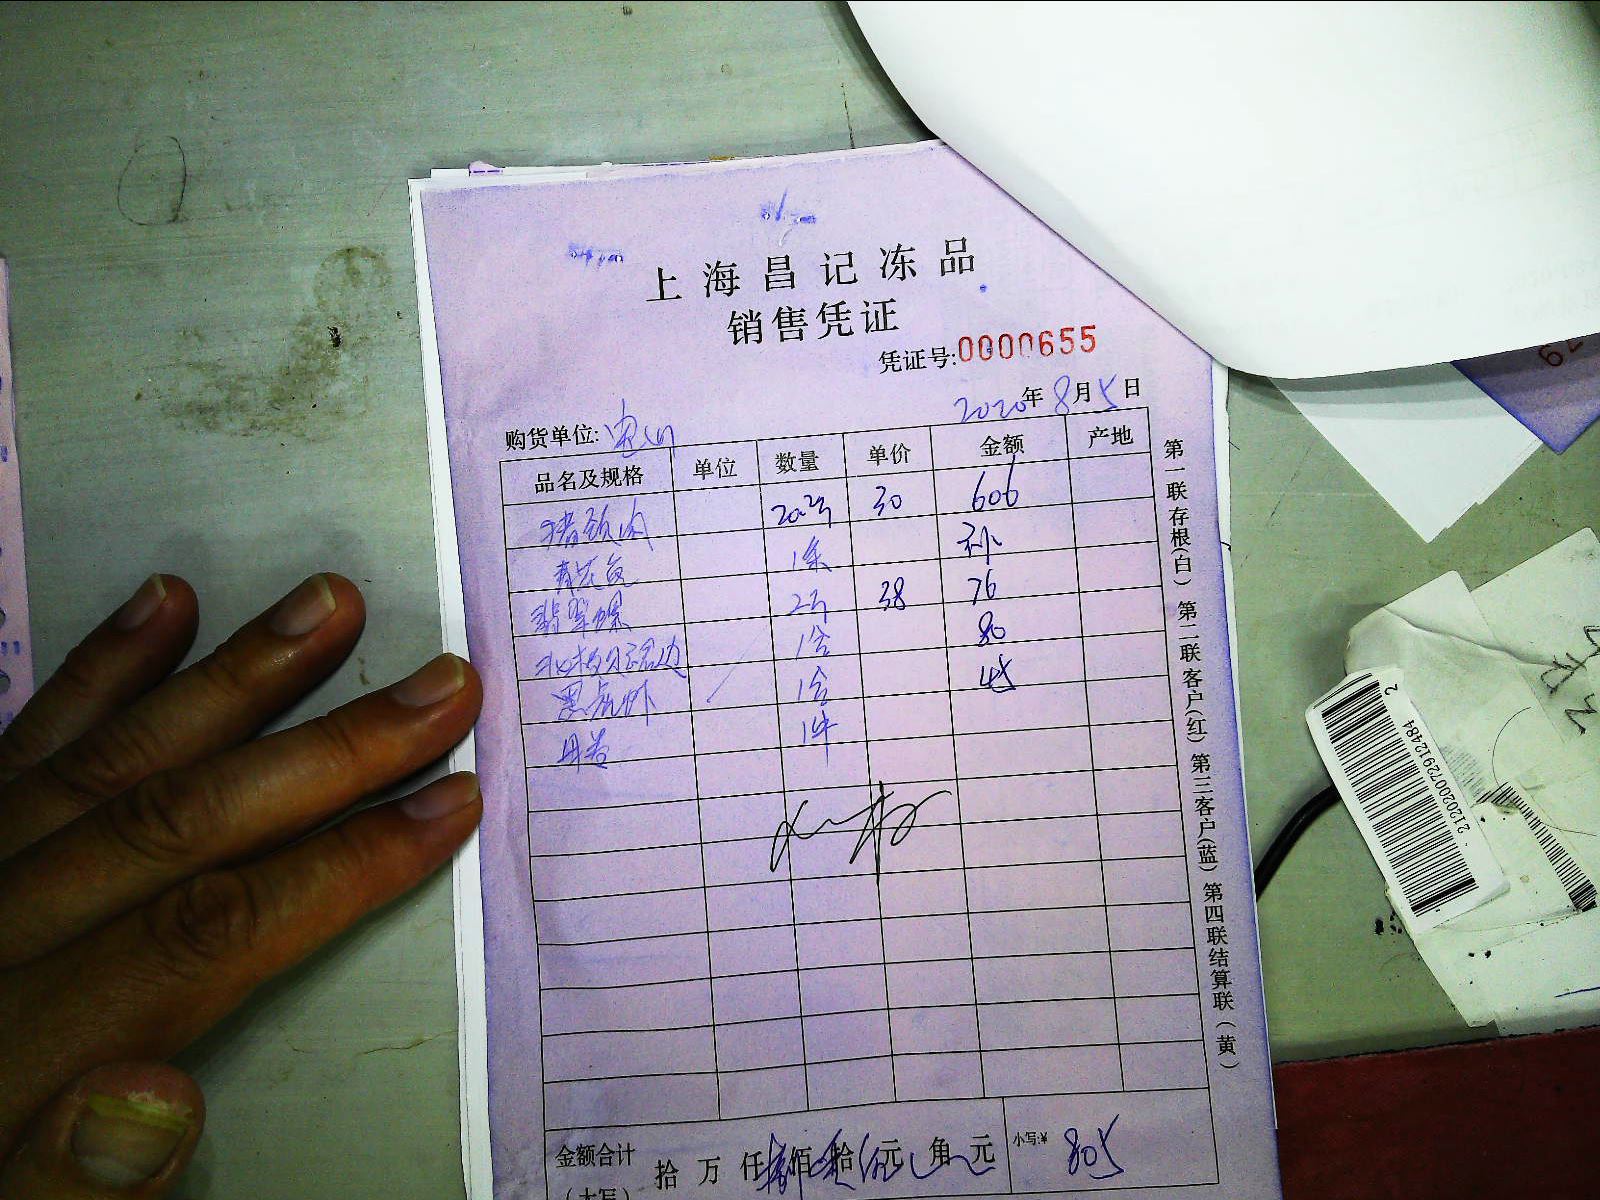 上海昌记冻品
销售凭证
凭证号:0000655
2020年8月5日
购货单位:宝山
品名及规格 单位 数量 单价 金额 产地
猪颈肉 20.2斤 30 606
青花鱼 1条 补
翡翠螺 2斤 38 76
北极贝裙边 1合 80
黑虎虾 1合 45
1件
金额合计 拾 万 仟 佰 拾 元 角 元 小写:¥ 805
(大写)
第一联存根(白) 第二联客户(红) 第三客户(蓝) 第四联结算联(黄)
212020072912484
2